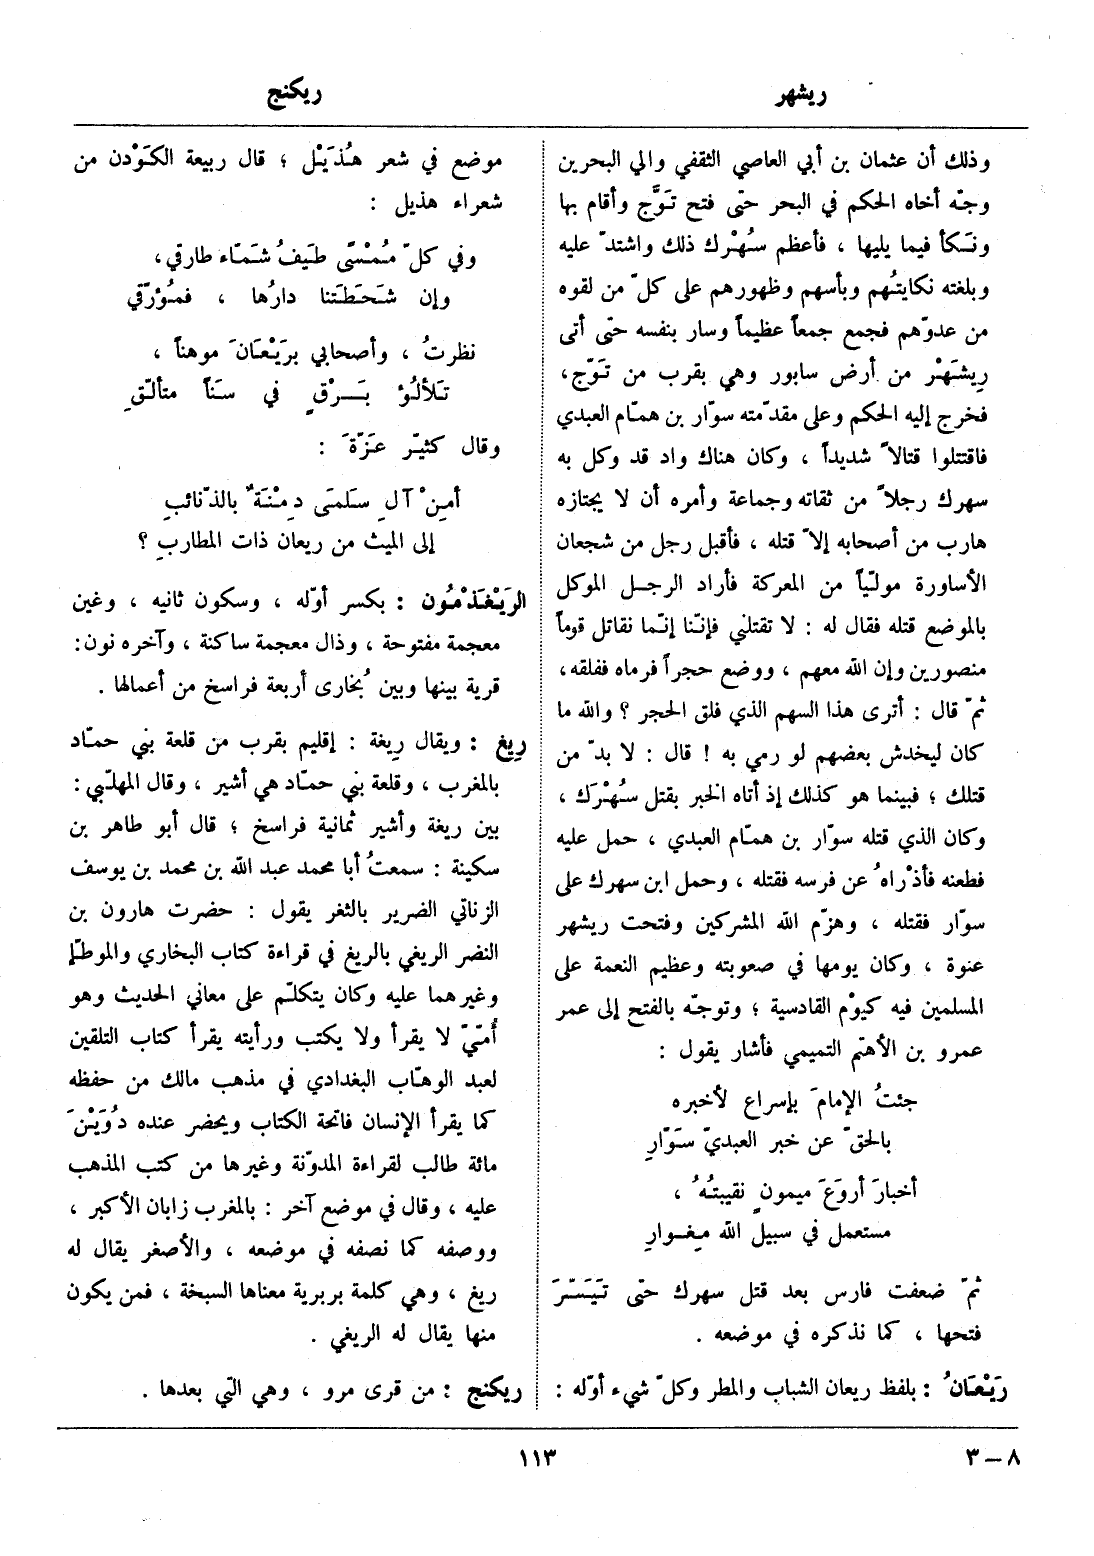 ريشهر
ريكنج
وذلك أن عثمان بن أبي العاصي الثقفي والي البحرين
وجّه أخاه الحكم في البحر حتى فتح تَوَّج وأقام بها
ونكأ فيما يليها ، فأعظم سُهْرك ذلك واشتدّ عليه
وبلغته نكايتُهم وبأسهم وظهورهم على كلّ من لقوه
من عدوّهم فجمع جمعاً عظيماً وسار بنفسه حتى أتى
رِيشَهْر من أرض سابور وهي بقرب من تَوّج،
فخرج إليه الحكم وعلى مقدّمته سوّار بن همّام العبدي
فاقتتلوا قتالاً شديداً ، وكان هناك واد قد وكل به
سهرك رجلاً من ثقاته وجماعة وأمره أن لا يجتازه
هارب من أصحابه إلاّ قتله ، فأقبل رجل من شجعان
الأساورة مولّياً من المعركة فأراد الرجل الموكل
بالموضع قتله فقال له : لا تقتلني فإنّنا إنّما نقاتل قوماً
منصورين وإن الله معهم ، ووضع حجراً فرماه ففلقه،
ثمّ قال : أترى هذا السهم الذي فلق الحجر ؟ والله ما
كان ليخدش بعضهم لو رمي به ! قال : لا بدّ من
قتلك ؛ فبينما هو كذلك إذ أتاه الخبر بقتل سُهْرَك ،
وكان الذي قتله سوّار بن همّام العبدي ، حمل عليه
فطعنه فأذْراهُ عن فرسه فقتله ، وحمل ابن سهرك على
سوّار فقتله ، وهزّم الله المشركين وفتحت ريشهر
عنوة ، وكان يومها في صعوبته وعظيم النعمة على
المسلمين فيه كيوْم القادسية ؛ وتوجّه بالفتح إلى عمر
عمرو بن الأهتم التميمي فأشار يقول :
جئتُ الإمامَ بإسراع لأخبره
بالحقّ عن خبر العبديّ سَوّارِ
أخبارَ أروَعَ ميمونٍ نقيبتُهُ ،
مستعمل في سبيل الله مِغوارِ
ثمّ ضعفت فارس بعد قتل سهرك حتى تَيَسّرَ
فتحها ، كما نذكره في موضعه .
رَيْعَانُ : بلفظ ريعان الشباب والمطر وكلّ شيء أوّله :
موضع في شعر هُذَيْل ؛ قال ربيعة الكَوْدن من
شعراء هذيل :
وفي كلّ مُمْسًى طَيفُ شَمّاء طارقي،
وإن شَحَطَتنا دارُها ، فمُؤرّقي
نظرتُ ، وأصحابي برَيْعَانَ موهناً ،
تَلألُؤَ بَرْقٍ في سَناً متألّقِ
وقال كثيّر عَزّةَ :
أمِنْ آلِ سَلمَى دِمْنَةٌ بالذّنائبِ
إلى الميث من ريعان ذات المطاربِ ؟
الرَيْغَذْمُون : بكسر أوّله ، وسكون ثانيه ، وغين
معجمة مفتوحة ، وذال معجمة ساكنة ، وآخره نون:
قرية بينها وبين بُخارى أربعة فراسخ من أعمالها .
رِيغ : ويقال رِيغة : إقليم بقرب من قلعة بني حمّاد
بالمغرب ، وقلعة بني حمّاد هي أشير ، وقال المهلّبي :
بين ريغة وأشير ثمانية فراسخ ؛ قال أبو طاهر بن
سكينة : سمعتُ أبا محمد عبد الله بن محمد بن يوسف
الزناتي الضرير بالثغر يقول : حضرت هارون بن
النضر الريغي بالريغ في قراءة كتاب البخاري والموطّإ
وغيرهما عليه وكان يتكلّم على معاني الحديث وهو
أُمّيّ لا يقرأ ولا يكتب ورأيته يقرأ كتاب التلقين
لعبد الوهّاب البغدادي في مذهب مالك من حفظه
كما يقرأ الإنسان فاتحة الكتاب ويحضر عنده دُوَيْنَ
مائة طالب لقراءة المدوّنة وغيرها من كتب المذهب
عليه ، وقال في موضع آخر : بالمغرب زابان الأكبر ،
ووصفه كما نصفه في موضعه ، والأصغر يقال له
ريغ ، وهي كلمة بربرية معناها السبخة ، فمن يكون
منها يقال له الريغي .
ريكنج : من قرى مرو ، وهي التي بعدها .
٨ – ٣
١١٣